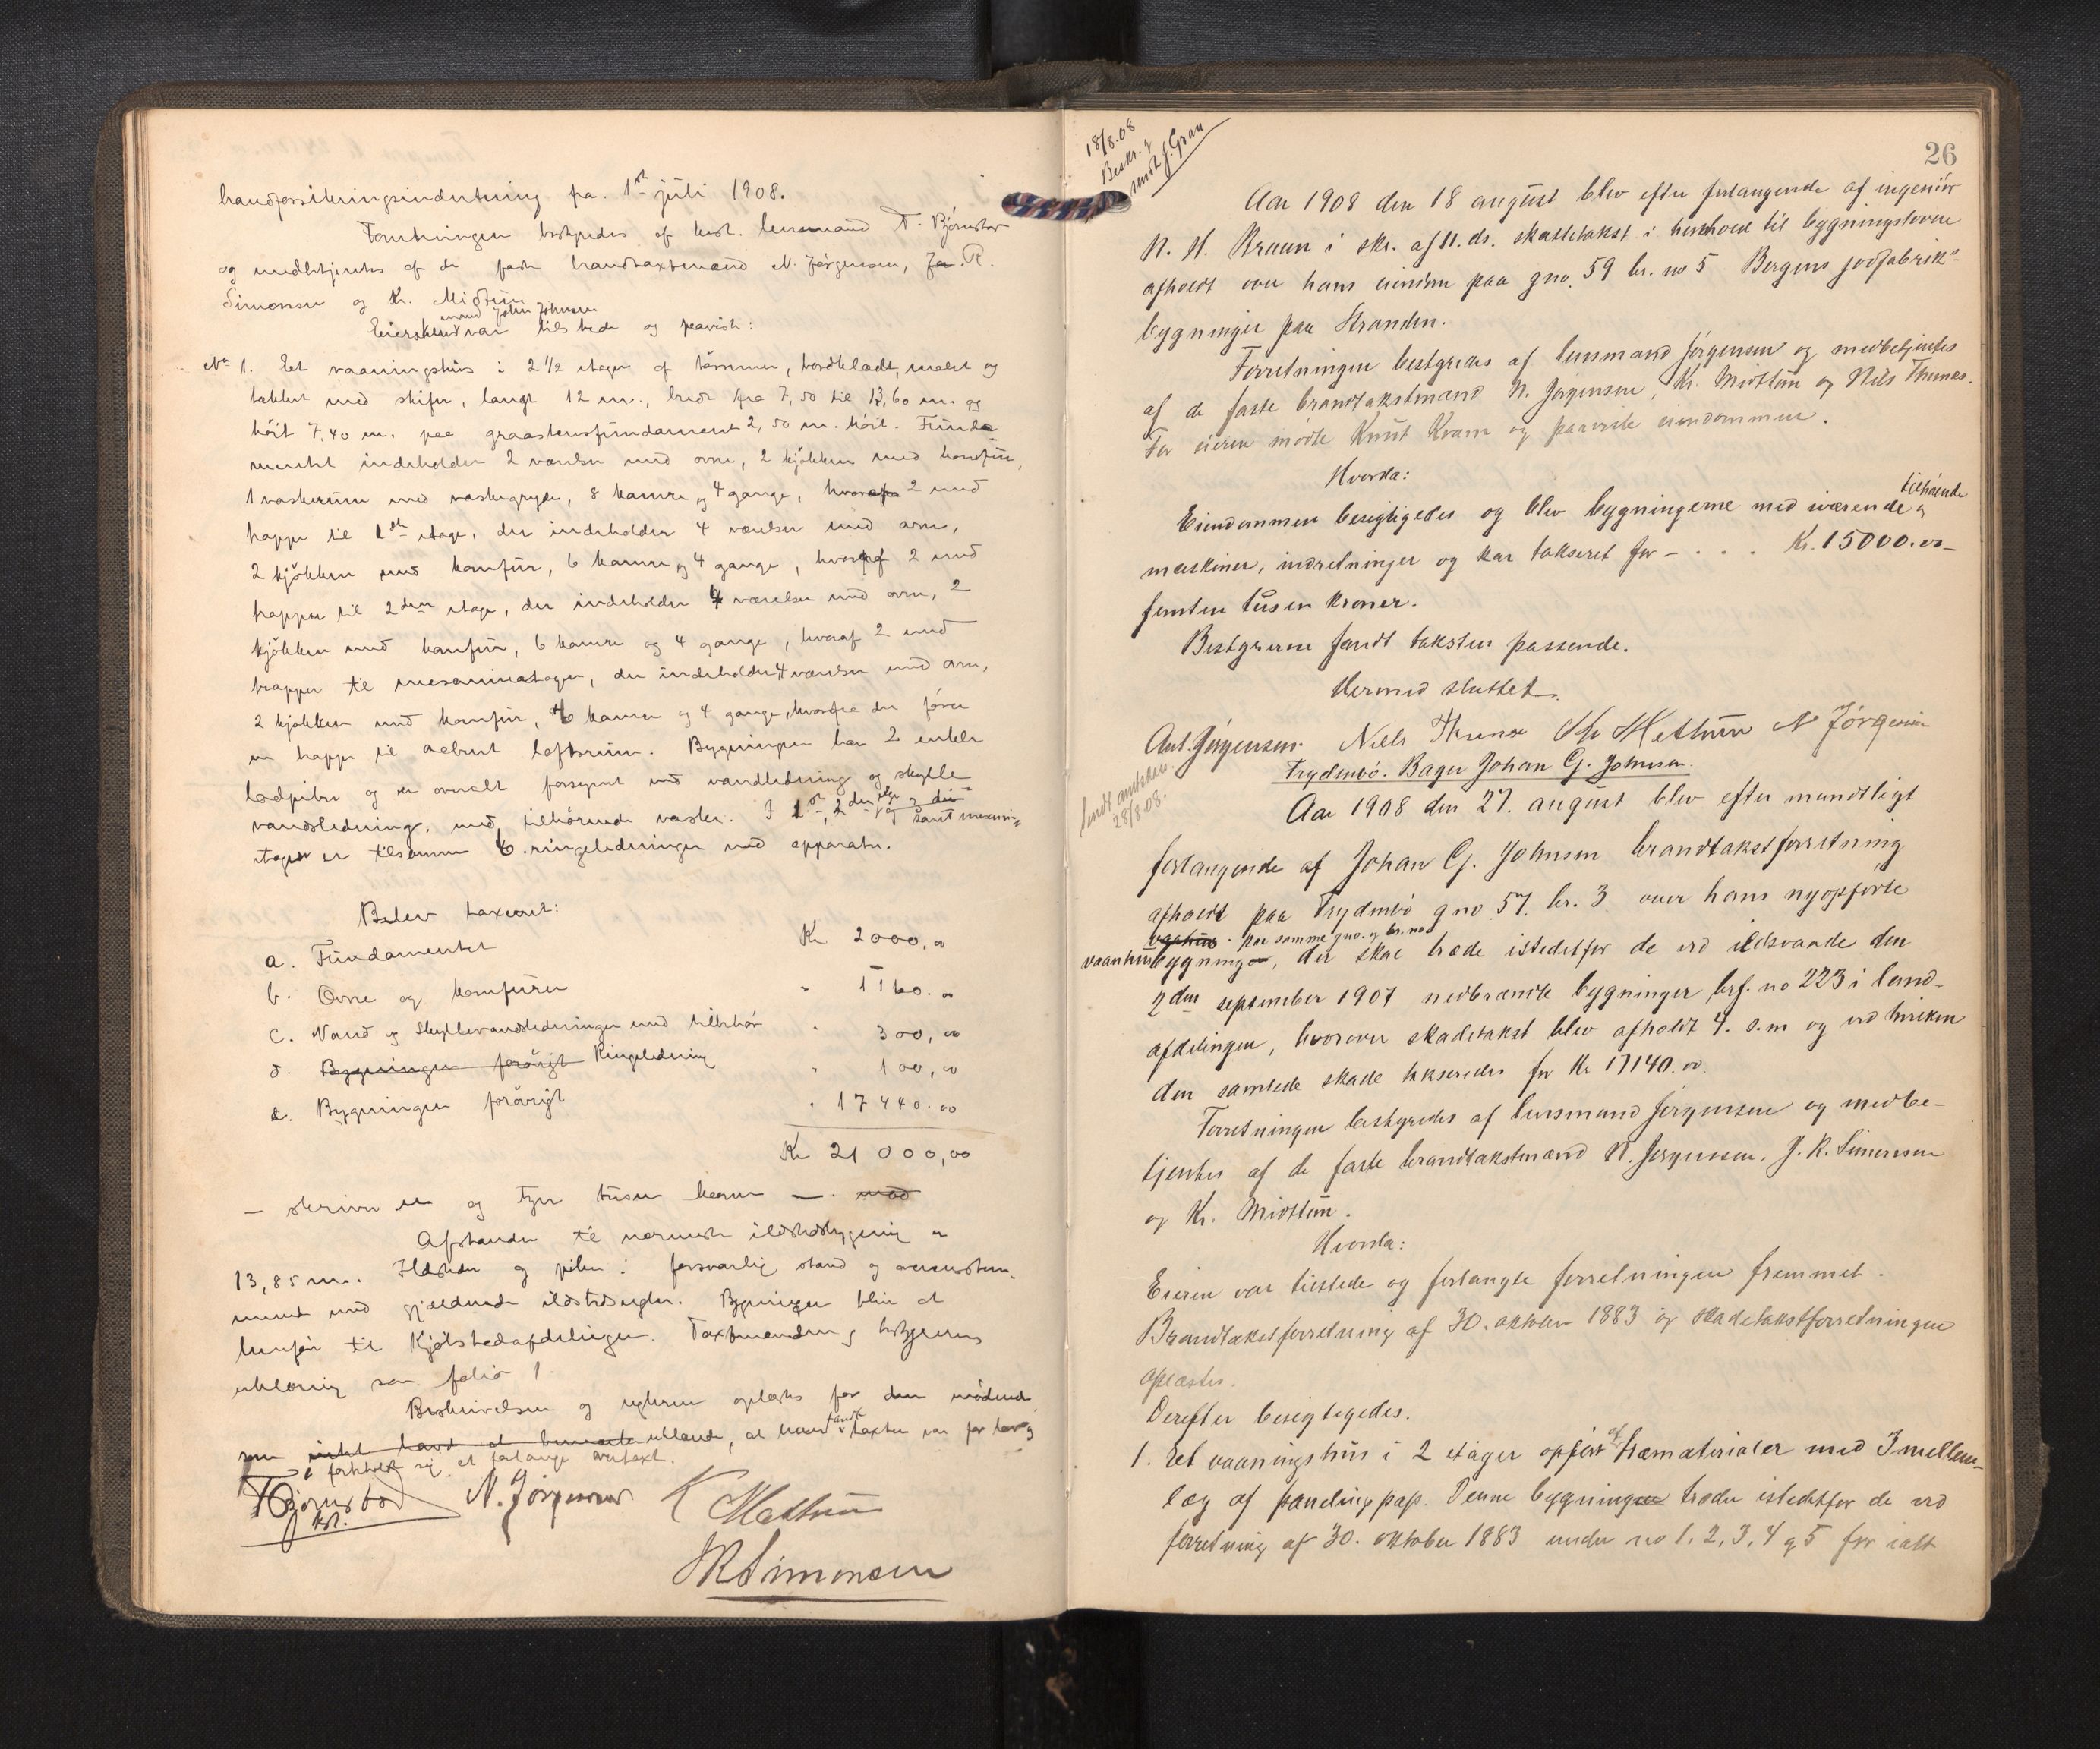 brandforsikringsindretning fra 1ste juli 1908.
Forretningen bestyredes af konst. lensmand T. Bjørnstad
og medbetjentes af de faste brandtaxtmænd N. Jørgensen, J. R.
Simonsen og Kr. Midttun
mand John Johnsen
Eierskens var tilstede og paaviste:
No 1. Et vaaningshus i 2 1/2 etager af tømmer, bordklædt, malet og
tækket med skifer, langt 12 m., bredt fra 7,50 til 13,60 m. og
høit 7,40 m. paa graastensfundament 2,50 m. høit. Funda
mentet indeholder 2 værelser med ovne, 2 kjøkken med komfur,
1 vaskerum med vaskegryde, 8 kamre og 4 gange, hvorafra 2 med
trappe til 1ste etage, der indeholder 4 værelser med ovne,
2 kjøkken med komfur, 6 kamre og 4 gange, hvoraf 2 med
trapper til 2den etage, der indeholder 4 værelser med ovne, 2
kjøkken med komfur, 6 kamre og 4 gange, hvoraf 2 med
trapper til mesaninetagen, der indeholder 4 værelser med ovn,
2 kjøkken med komfur, 6 kamre og 4 gange, hvorfra der fører
en trappe til aabent loftsrum. Bygningen har 2 enkle
teglpiber og er overalt forsynet med vandledning og skylle
vandsledning, med tilhørende vaske. I 1ste, 2den etage og samt mesanin
etagen er tilsammen 6 ringeledninger med apparater.
Blev taxeret:
a. Fundamentet Kr 2000,00
b. Ovne og komfurer " 1160.00
c. Vand og Skyllevandsledninger med tilbehør " 300,00
d. Bygningen forøvrigt Ringeledning " 100,00
e. Bygningen forøvrigt " 17440.00
Kr 21000,00
— skriver en og tyve tusen kroner —. mod
Afstanden til nærmeste ildstedsbygning er
13,85 m. Ildsteder og piber i forsvarlig stand og overensstem-
mende med gjældende ildstedsregler. Bygningen blir at
henføre til Kjølstadafdelingen. Taxtmænden og bestyrerens
erklæring som folio 1.
Beskrivelsen og reglerne oplæstes for den mødende
som intet havde at bemærke erklærede, at han fandt taxten var for lav og
forbeholdt sig at forlange overtaxt.
T Bjørnstad
kst.
N. Jørgensen K Mettun
J R Simonsen
26
18/8.08
Beskr. og
sendt f. Gran
Aar 1908 den 18 august blev efter forlangende af ingeniør
N. H. Bruun i skr. af 11. ds. skattetakst i henhold til bygningsloven
afholdt over hans eiendom paa gno. 59 br. no 5 Bergens jodfabriks-
bygninger paa Stranden.
Forretningen bestyredes af lensmand Jørgensen og medbetjentes
af de faste brandtakstmænd N. Jørgensen, Kr. Midttun og Nils Thunes.
For eieren mødte Knut Kvam og paaviste eiendommen.
Hvorda:
Eiendommen besigtigedes og blev bygningerne med iværende og tilhørende
maskiner, indretninger og kar takseret for - . . . Kr. 15000.00-
femten tusen kroner.
Bestyrerne fandt taksten passende.
Hermed sluttet.
Ant. Jørgensen. Nils Thunes Kr Mettun N Jørgensen
Frydenbø. Bager Johan G. Johnsen.
Sendt amtskass.
28/8.08.
Aar 1908 den 27. august blev efter mundtligt
forlangende af Johan G. Johnsen brandtakstforretning
afholdt paa Frydenbø gno 57. br. 3 over hans nyopførte
vaahus paa samme gno. og br. no
vaanhusbygning, der skal træde istedetfor de ved ildsvaade den
2den september 1907 nedbrændte bygninger brf. no 223 i land-
afdelingen, hvorover skadetakst blev afholdt 4. s.m og ved hvilken
den samlede skade takseredes for Kr 17140.00.
Forretningen bestyredes af lensmand Jørgensen og medbe-
tjentes af de faste brandtakstmænd N. Jørgensen, J. R. Simonsen
og Kr. Midttun.
Hvorda:
Eieren var tilstede og forlangte forretningen fremmet.
Brandtakstforretning af 30. oktober 1883 og skadetakstforretningen
oplæstes.
Derefter besigtigedes.
1. Et vaaningshus i 2 etager opført af træmaterialer med Imellem-
læg af panelingpap. Denne bygning træder istedetfor de ved
forretning af 30. oktober 1883 under no 1, 2, 3, 4 og 5 for ialt